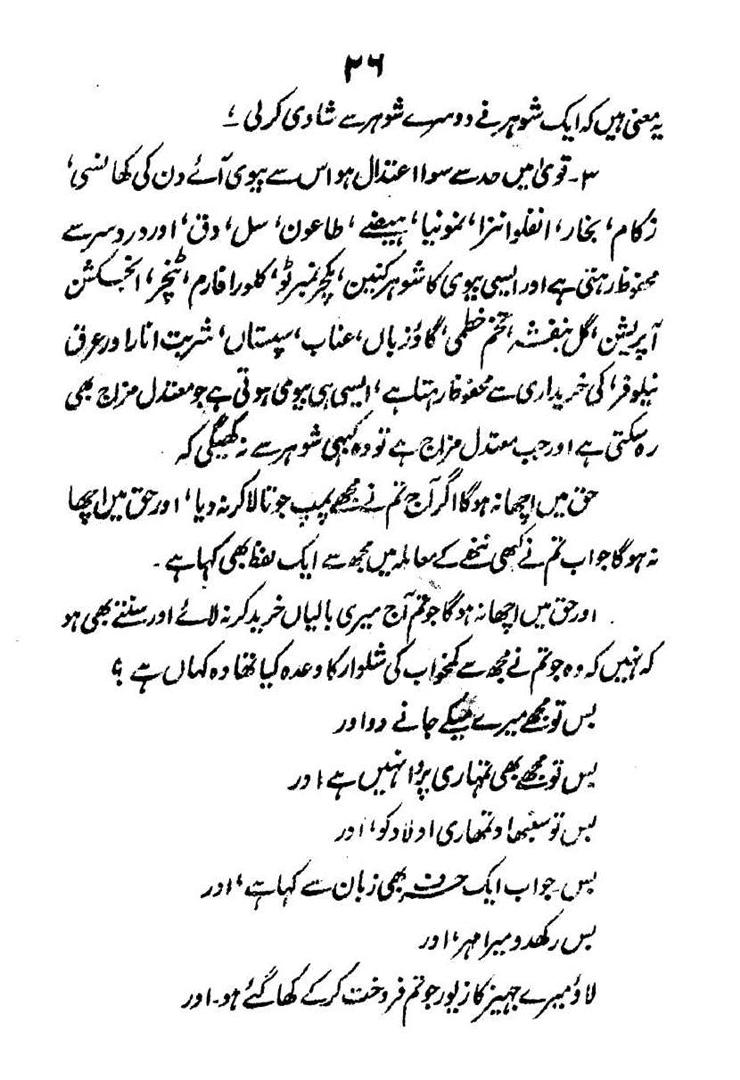 ۳۶
یہ معنی ہیں کہ ایک شوہر نے دوسرے شوہر سے شادی کر لی ؟
۳۔ قویٰ میں حد سے سوا اعتدال ہو اس سے بیوی آئے دن کی کھانسی،
زکام، بخار، انفلوانزا، نمونیا، ہیضے، طاعون، سل، دق، اور درد سر سے
محفوظ رہتی ہے اور ایسی بیوی کا شوہر کنین، مکچر نمبر ٹو، کلورا فارم، ٹنچر، انجکشن
آپریشن، گل بنفشہ، تخم خطمی، گاؤزباں، عناب، سپستاں، شربت انار اور عرق
نیلوفر، کی خریداری سے محفوظ رہتا ہے، ایسی ہی بیوی ہوتی ہے جو معتدل مزاج بھی
رہ سکتی ہے اور جب معتدل مزاج ہے تو وہ کبھی شوہر سے نہ کہیگی کہ
حق میں اچھا نہ ہوگا اگر آج تم نے مجھے پمپ جوتا لا کر نہ دیا، اور حق میں اچھا
نہ ہوگا جو اب تم نے کبھی ننھے کے معاملہ میں مجھ سے ایک لفظ بھی کہا ہے۔
اور حق میں اچھا نہ ہوگا جو تم آج میری بالیاں خرید کر نہ لائے اور سنتے بھی ہو
کہ نہیں کہ وہ جو تم نے مجھ سے کمخواب کی شلوار کا وعدہ کیا تھا وہ کہاں ہے ؟
بس تو مجھے میرے میکے جانے دو اور
بس تو مجھے بھی تمہاری پروا نہیں ہے اور
بس تو سنبھالو تمھاری اولاد کو، اور
بس جو اب ایک حرف بھی زبان سے کہا ہے، اور
بس رکھدو میرا مہر، اور
لاؤ میرے جہیز کا زیور جو تم فروخت کر کے کھا گئے ہو۔ اور